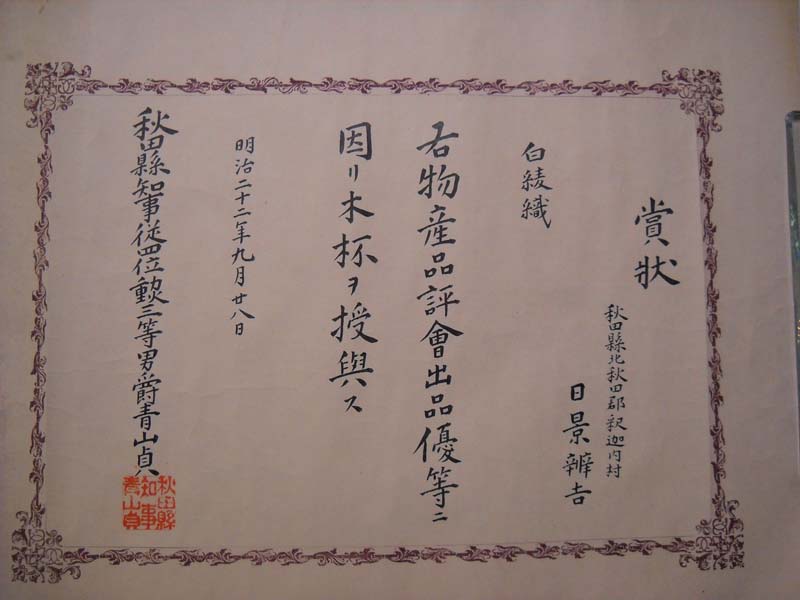 賞狀
秋田縣北秋田郡釈迦内村
日景辨吉
白綾織
右物産品評會出品優等ニ
因リ木杯ヲ授與ス
明治二十二年九月廿八日
秋田縣知事従四位勲三等男爵青山貞
秋田縣
知事
青山貞